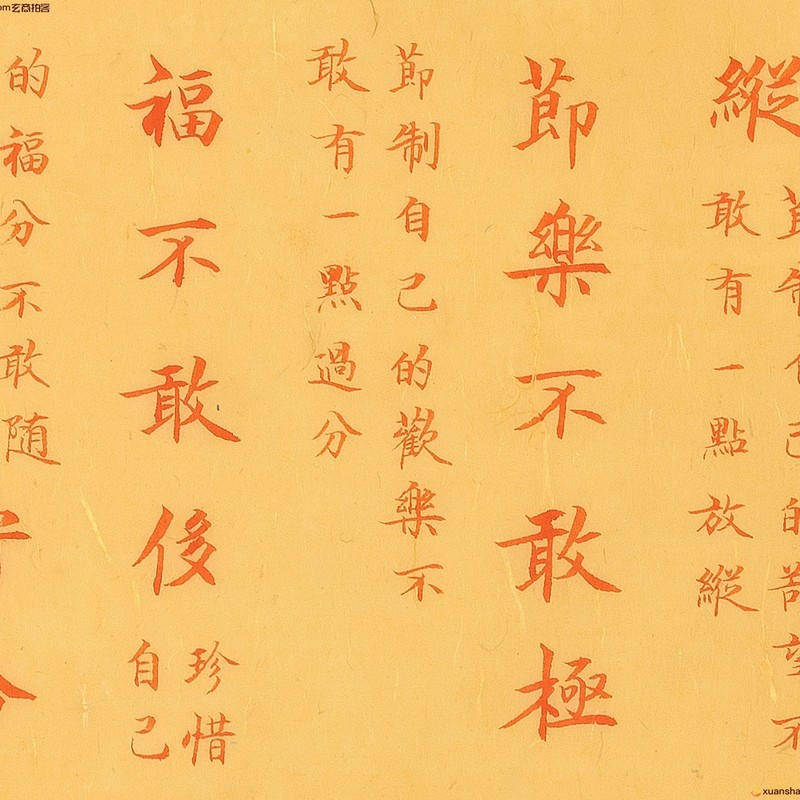 縱
制自己的望不
敢有一點放縱
莭樂不敢極
莭制自己的歡樂不
敢有一點過分
福不敢侈
珍惜
自己
的福分不敢随
om玄商拍客
xuansha